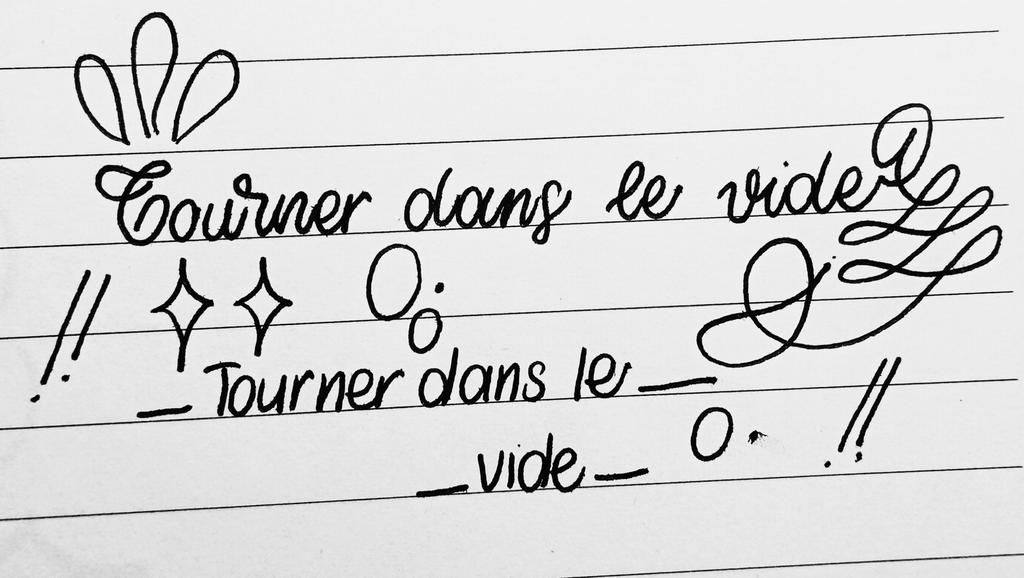 Tourner dans le vide
!! !!
_Tourner dans le_
_vide_